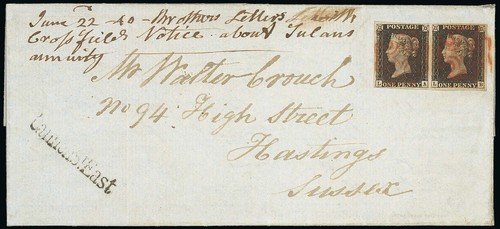 June 22 - 40 - Brothers Letters & with
Crossfields Notice about Julans
annuity
POSTAGE
ONE PENNY
POSTAGE
ONE PENNY
Mr Walter Crouch
No 94 High Street
Hastings
Sussex